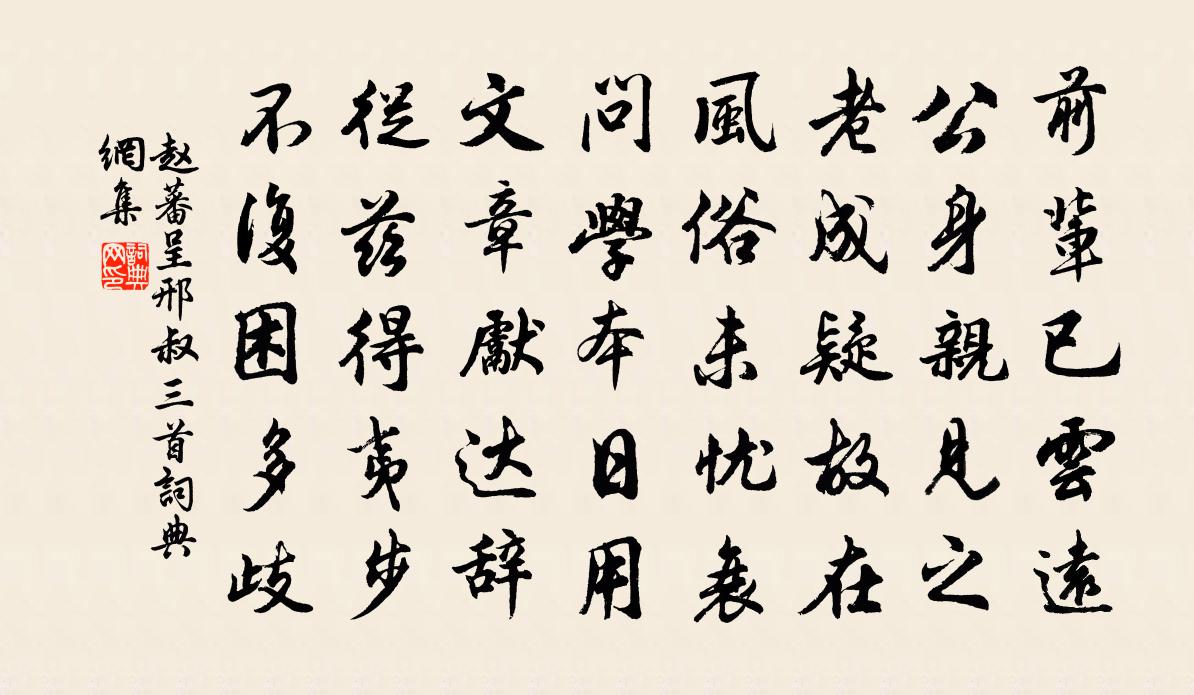 前輩已雲遠
公身親見之
老成疑故在
風俗未忧衰
問學本日用
文章獻达辞
從茲得夷步
不復困多歧
赵蕃呈邢叔三首詞典
網集
詞典
网印